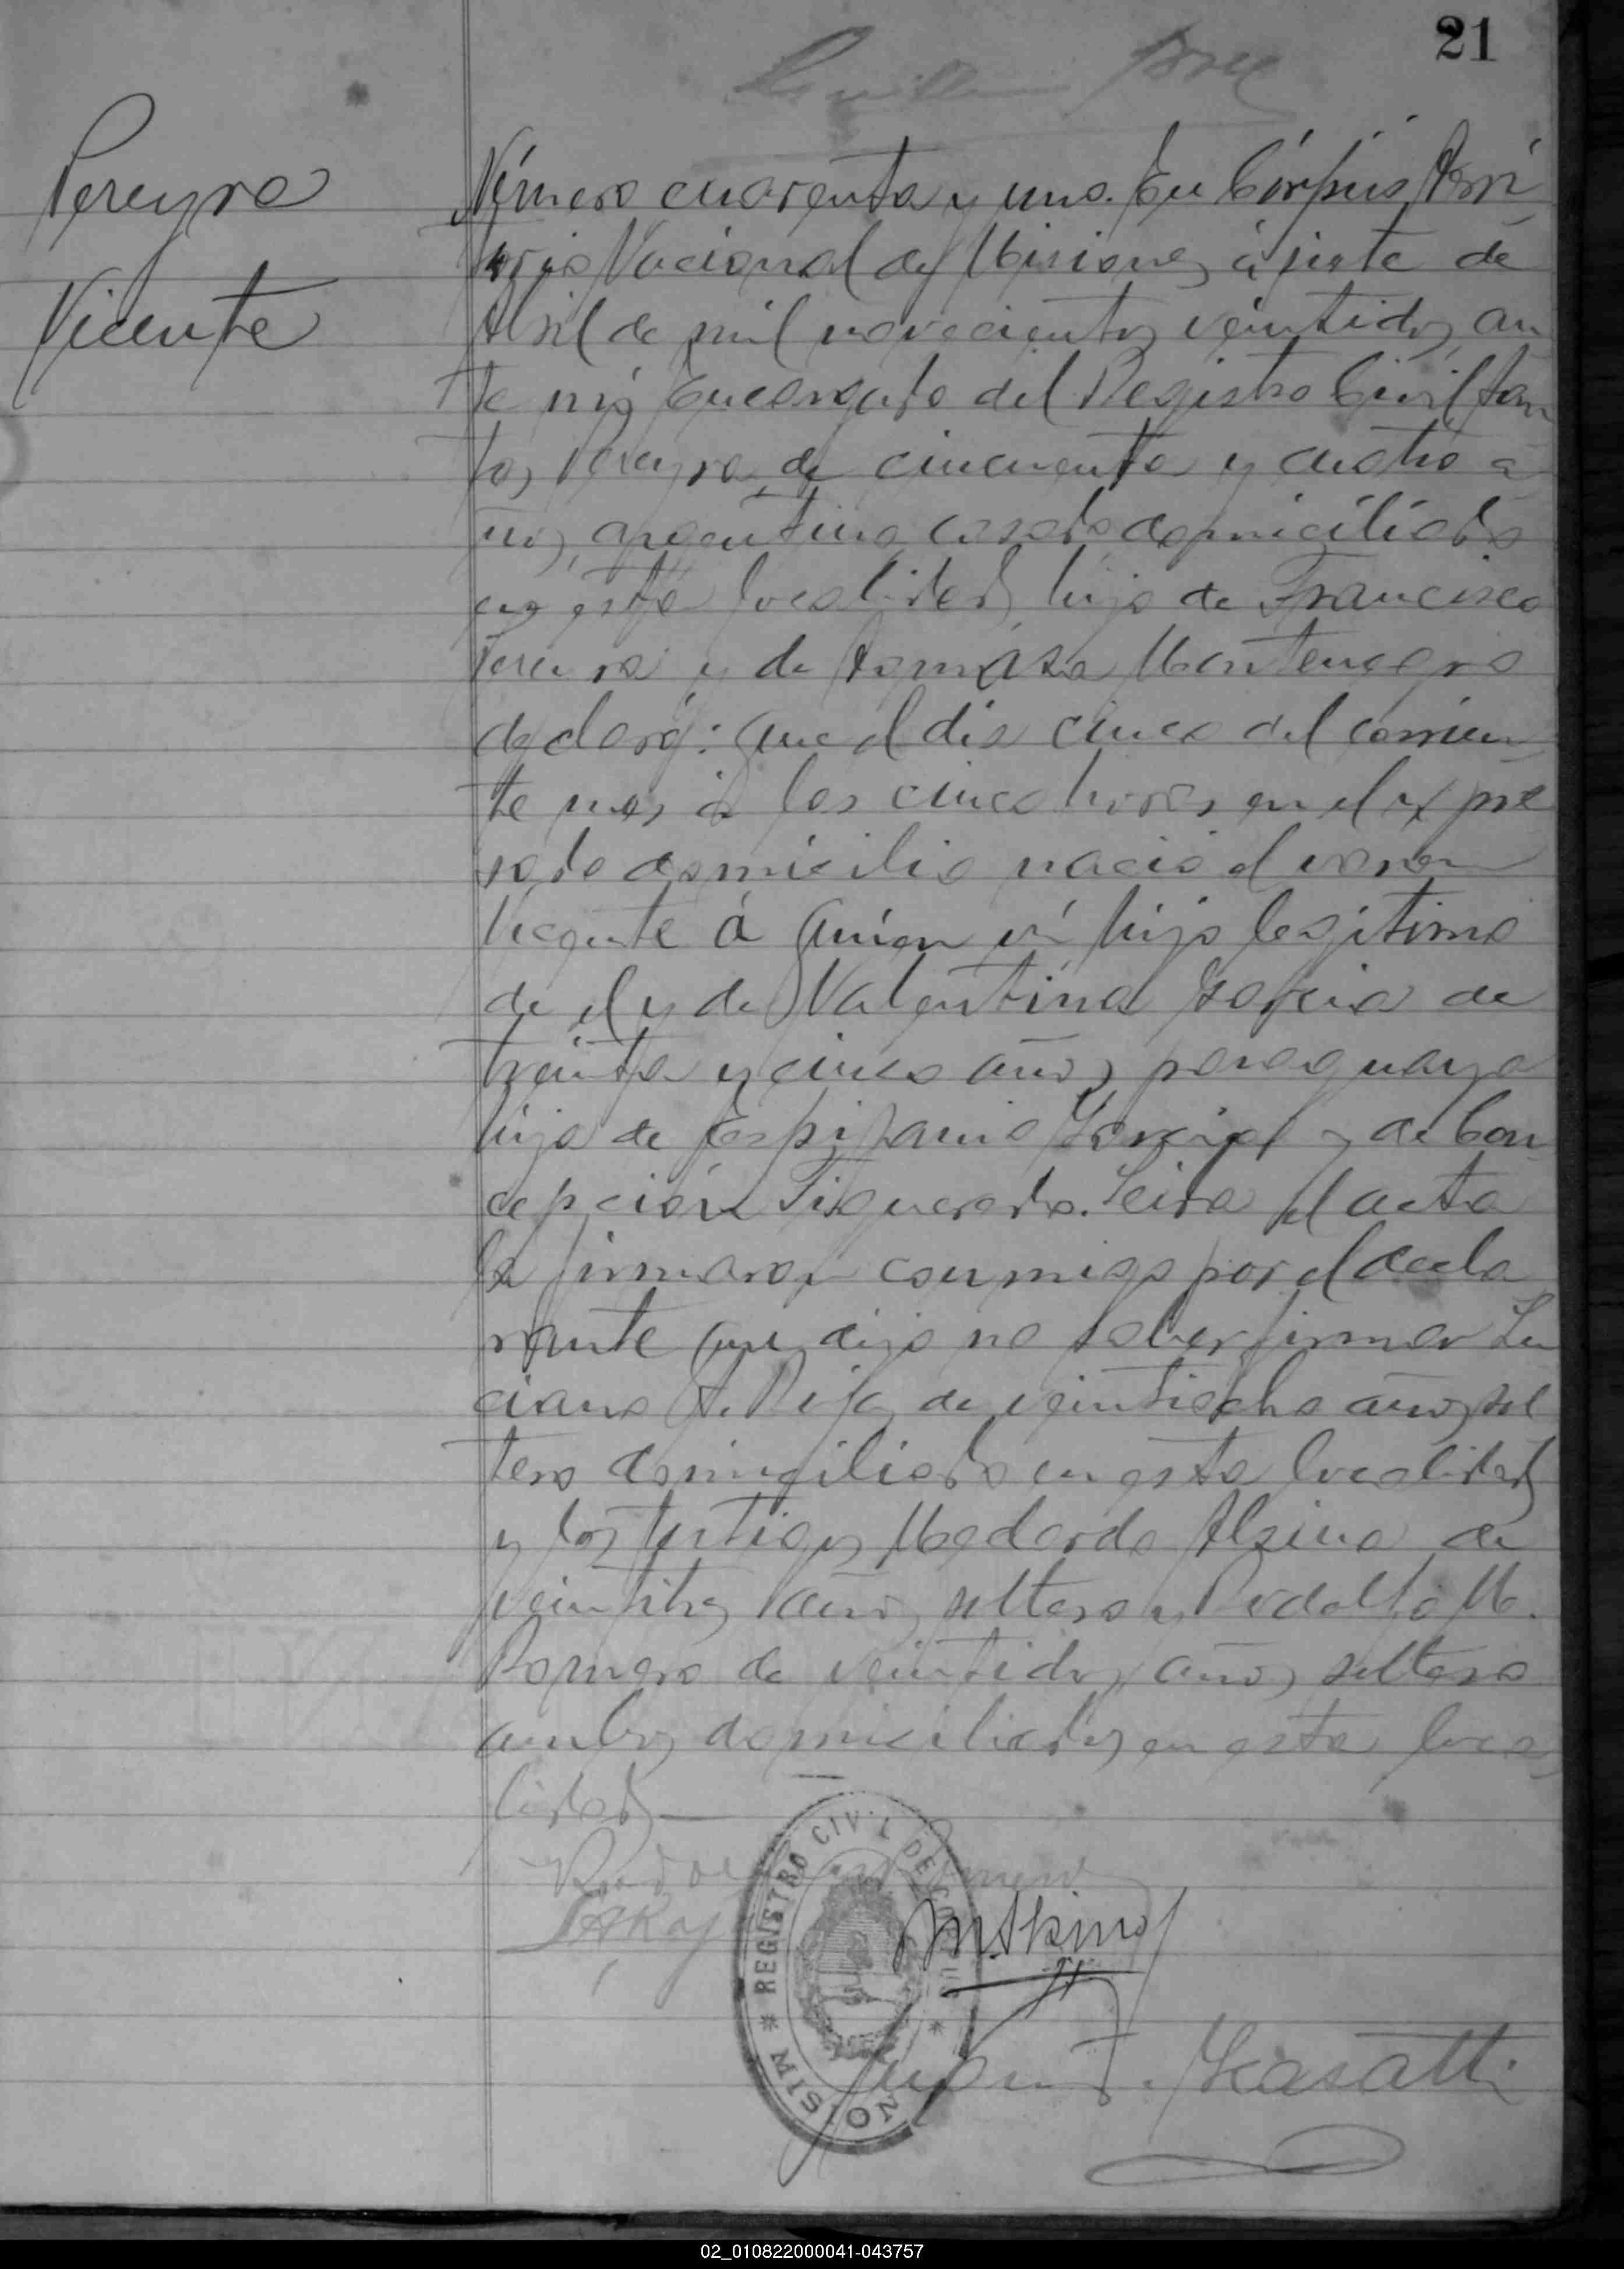 21
Pereyra
Vicente
Número cuarenta y uno. En Córpus, Terri
torio Nacional de Misiones, à siete de
Abril de mil novecientos veintidos, an
te mi, Encargado del Registro Civil, San
tos Pereyra, de cincuenta y cuatro a
ños, argentino, casado, domiciliado
en esta localidad, hijo de Francisco
Pereyra y de Tomasa Montenegro
declaró: Que el dia cinco del corrien
te mes à las cinco horas en el expre
sado domicilio nació el varon
Vicente à quien vi, hijo legitimo
de el y de Valentina Garcia de
treinta y cinco años, paraguaya
hija de Espifanio Garcia y de Con
cepción Figueredo. Leida el acta
la firmaron conmigo por el decla
rante que dijo no saber firmar Lu
ciano A. de veintiocho años, sol
tero domiciliado en esta localidad
y los testigos Medardo Alsina de
veintitres años, soltero y Rodolfo M.
Romero de veintidos años, soltero
ambos domiciliados en esta loca
lidad
Rodolfo Romero
M. Alsina
REGISTRO CIVIL DE CORPUS
* MISIONES *
Juan F. Gasatti
02_010822000041-043757